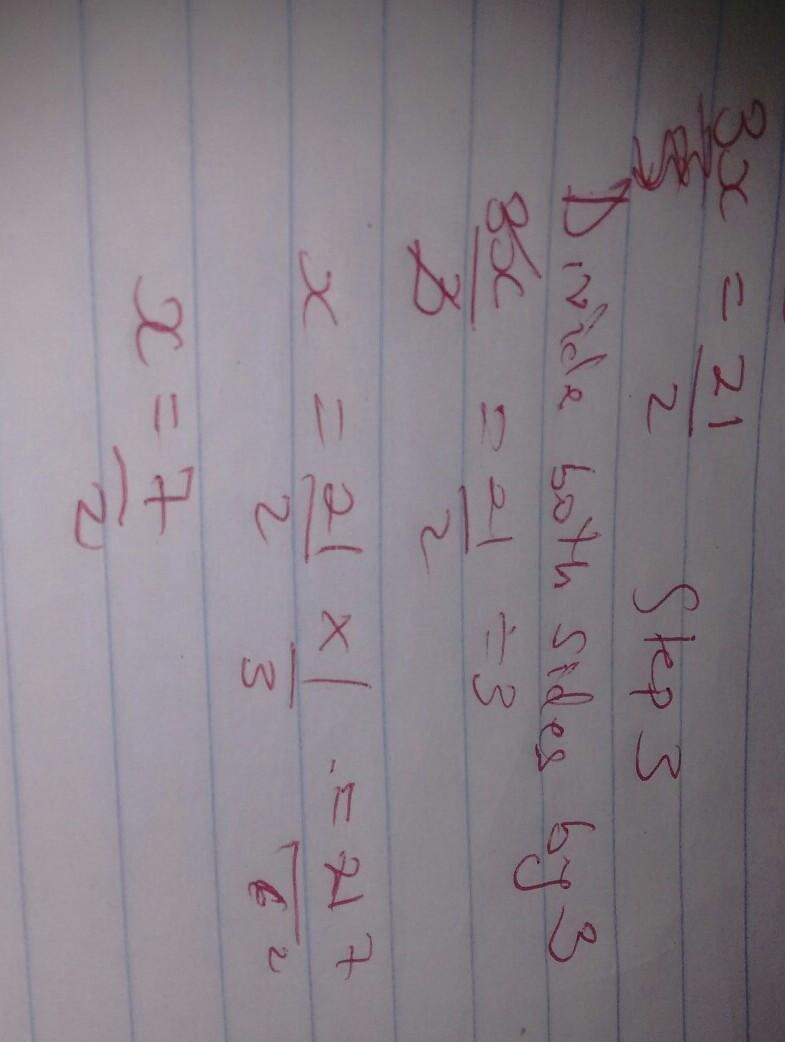 3x = 21/2 Step 3
Divide both sides by 3
3x/3 = 21/2 ÷ 3
x = 21/2 x 1/3 = 21 7/6 2
x = 7/2